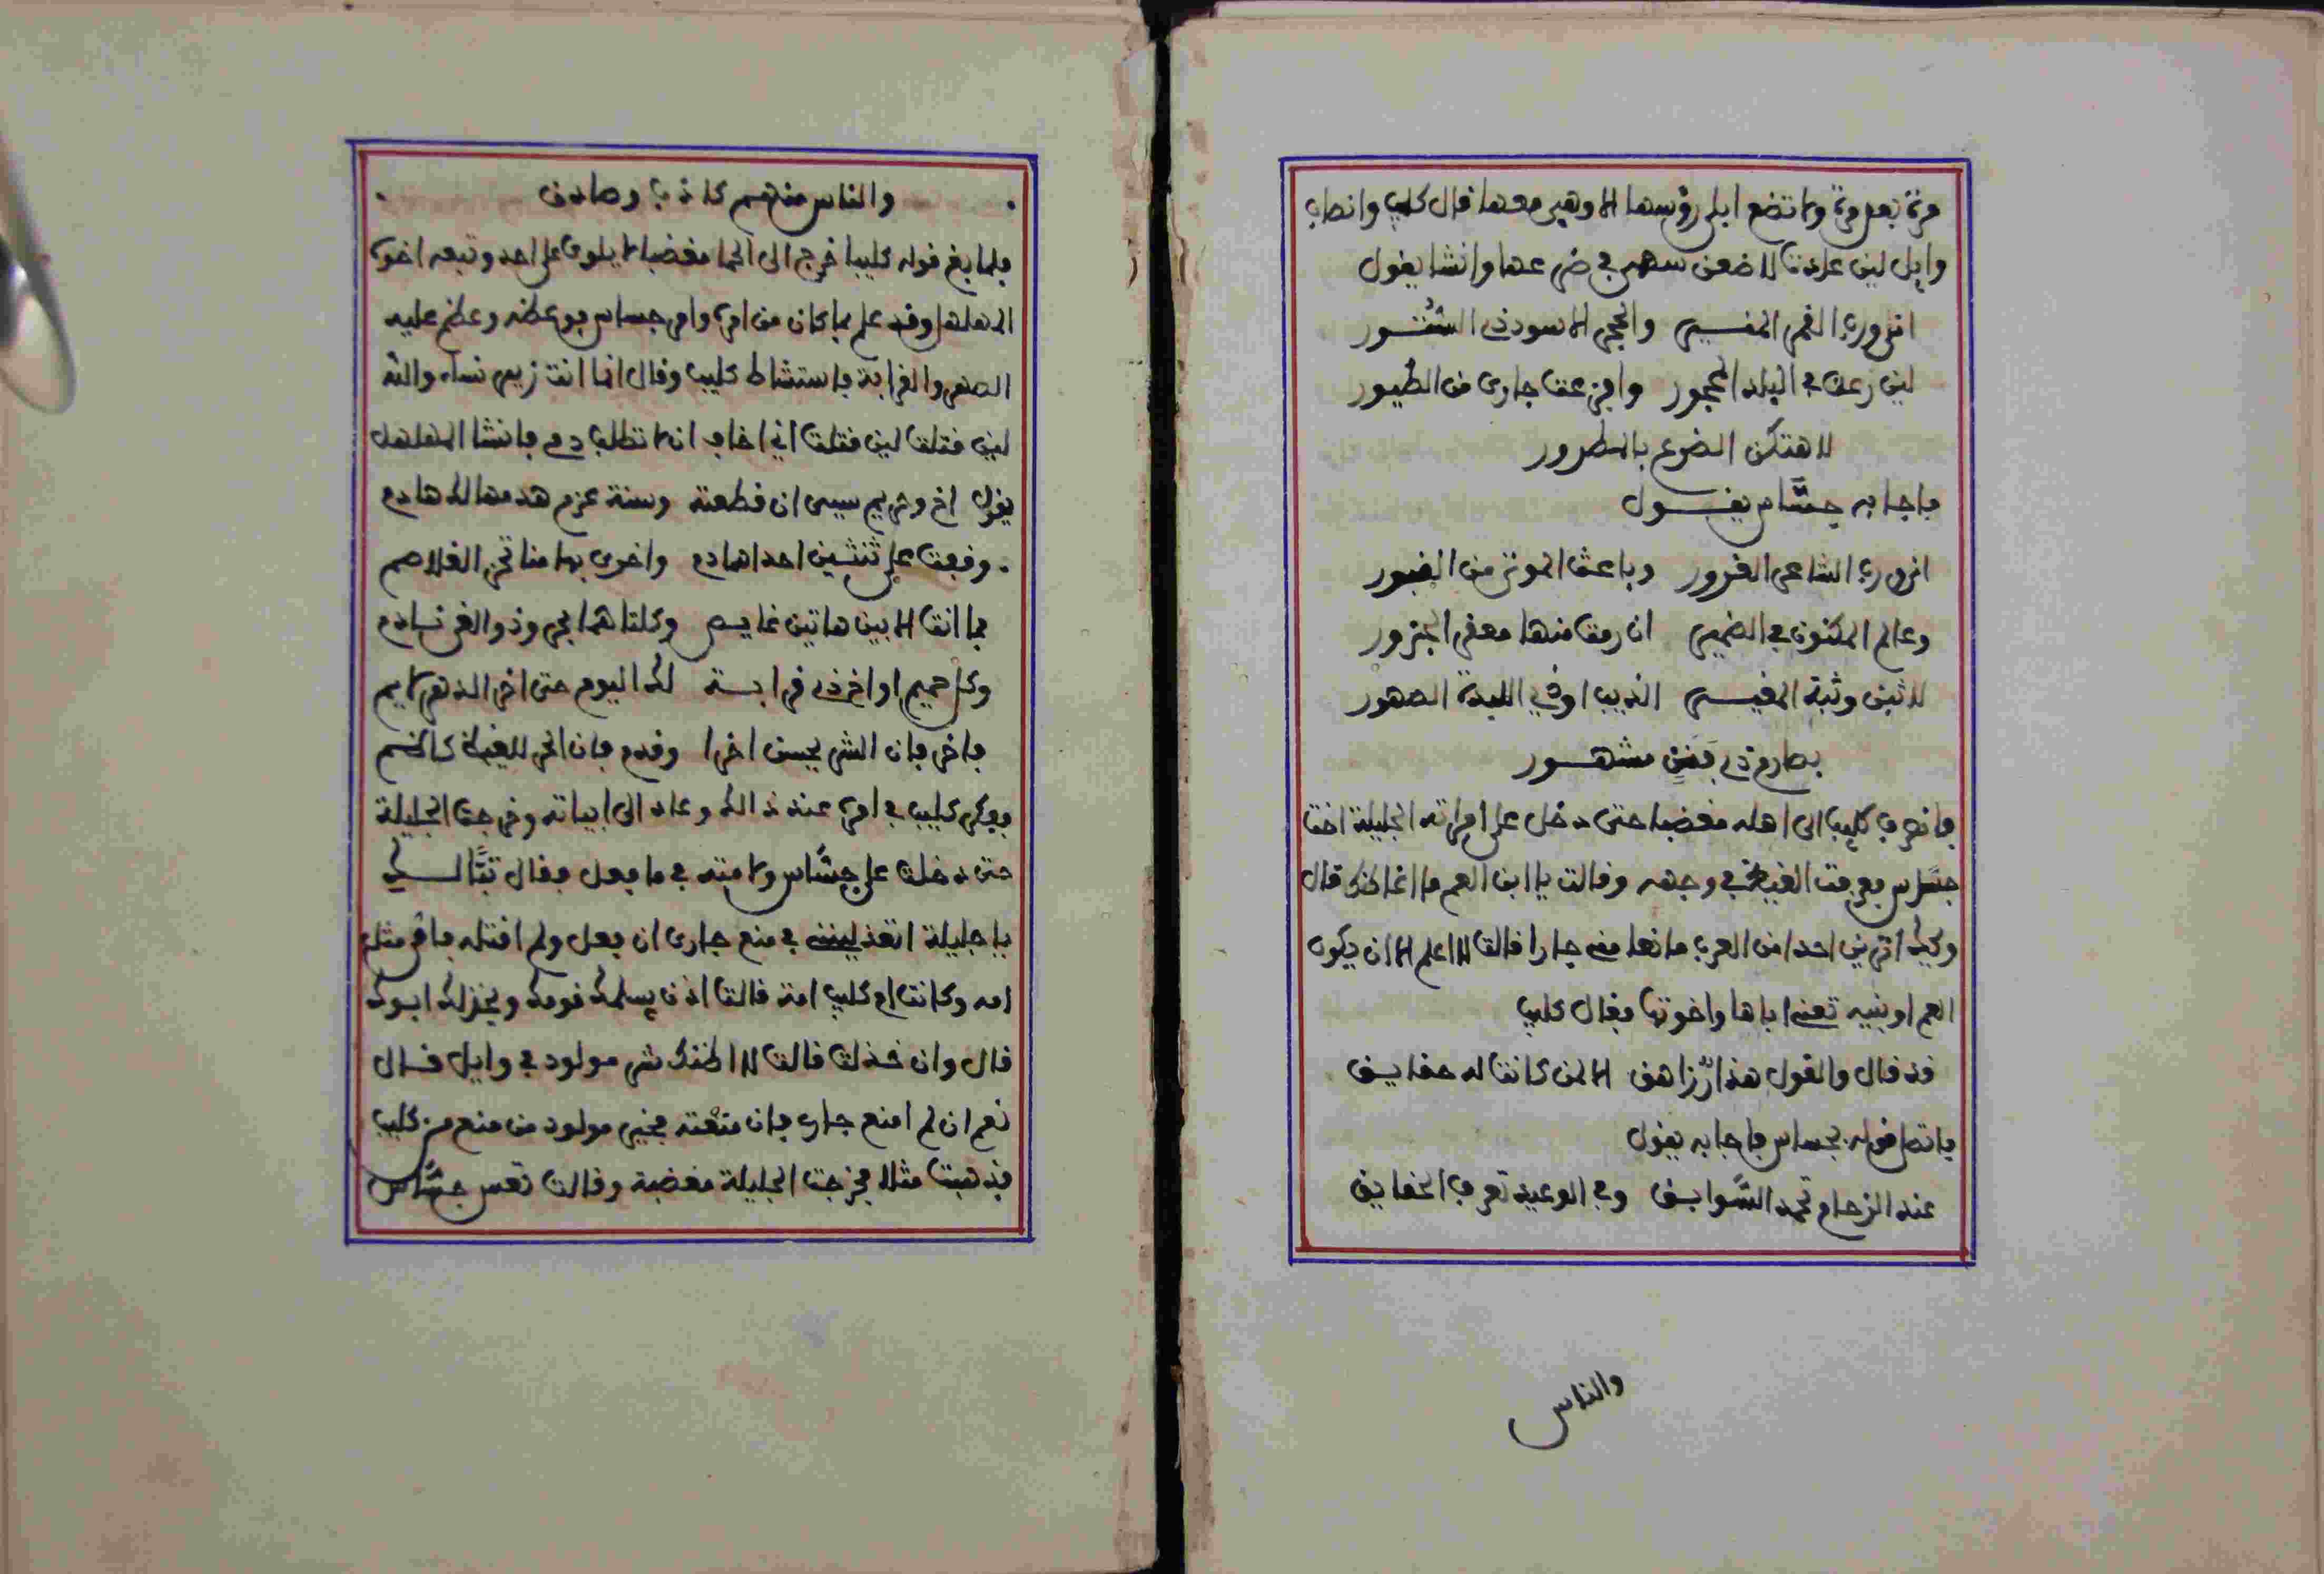 مرة بعد مرة ولا تضع ابلي رؤسها الا وهي معها فال كليب وانصاب
وايل لين عادت لاضعن سهمي في ضرعها وانشا يفول
اني ورب الفمر المنير والحجر الاسود ذي الستور
لين رعت في البلد المحجور وافزعت جاري من الطيور
لاهتكن الضرع بالمطرور
فاجابه جساس يفول
اني ورب الشاعر الغرور وباعث الموتى من الفبور
وعالم المكنون في الضمير ان رمت منها معفر الجزور
لاثبن وثبة المغير الذيب اوذي اللبدة الهصور
بصارم ذي مشهور
فانصرف كليب الى اهله مغضبا حتى دخل على امراته الجليلة اخت
جساس فعرفت الغيظ في وجهه وفالت يا ابن العم ما اغاظك فال
ويك اترين احدا من العرب مانعا مني جارا فالت لا اعلم الا ان يكون
العم او بنيه تعني اباها واخوتها ففال كليب
فد فال والفول هذا زاهف الا لمن كانت له حفايف
فاتصل فوله بجساس فاجابه يفول
عند الزحام تحمد السوابف وفي الوعيد تعرف الحفايف
والناس
والناس منهم كاذب وصادف
فلما بلغ فوله كليبا خرج الى الحما مغضبا لا يلوي على احد وتبعه اخوه
المهلهل وفد علم بما كان من امره وامر جساس فوعظه وعظم عليه
الصهر والفرابة فاستشاط كليب وفال انما انت زير نساء والله
لين فتلت لين فتلت اني اخاف ان لا تطلب دمي فانشا المهلهل
يفول اخ وحريم سيى ان فطعته وسنة عزم هدمها لك هادم
وفعت على ثنتين احداهما دم واخرى بها منا تحز الغلاصم
فما انت الا بين هاتين غايص وكلتاهما بحر وذو الغي نادم
وكل حميم او اخ ذي فرابة لك اليوم حتى اخر الدهر لايم
فاخر فان الشر يحسن اخرا وفدم فان الحر للغيظ كاظم
ففكر كليب في امره عند ذالك وعاد الى ابياته وخرجت الجليلة
حتى دخلت على جساس ولامته في ما فعل ففال تبا لك
يا جليلة في منع جاري ان فعل ولم افتله فافي مثلي
امه وكانت ام كليب امة فالت اذن يسلمك فومك ويخذلك ابوك
فال وان خذلت فالت لا اظنك شر مولود في وايل فال
نعم ان لم امنع جاري فان منعته فخير مولود من منع من كليب
فذهبت مثلا فخرجت الجليلة مغضبة وفالت تعس جساس